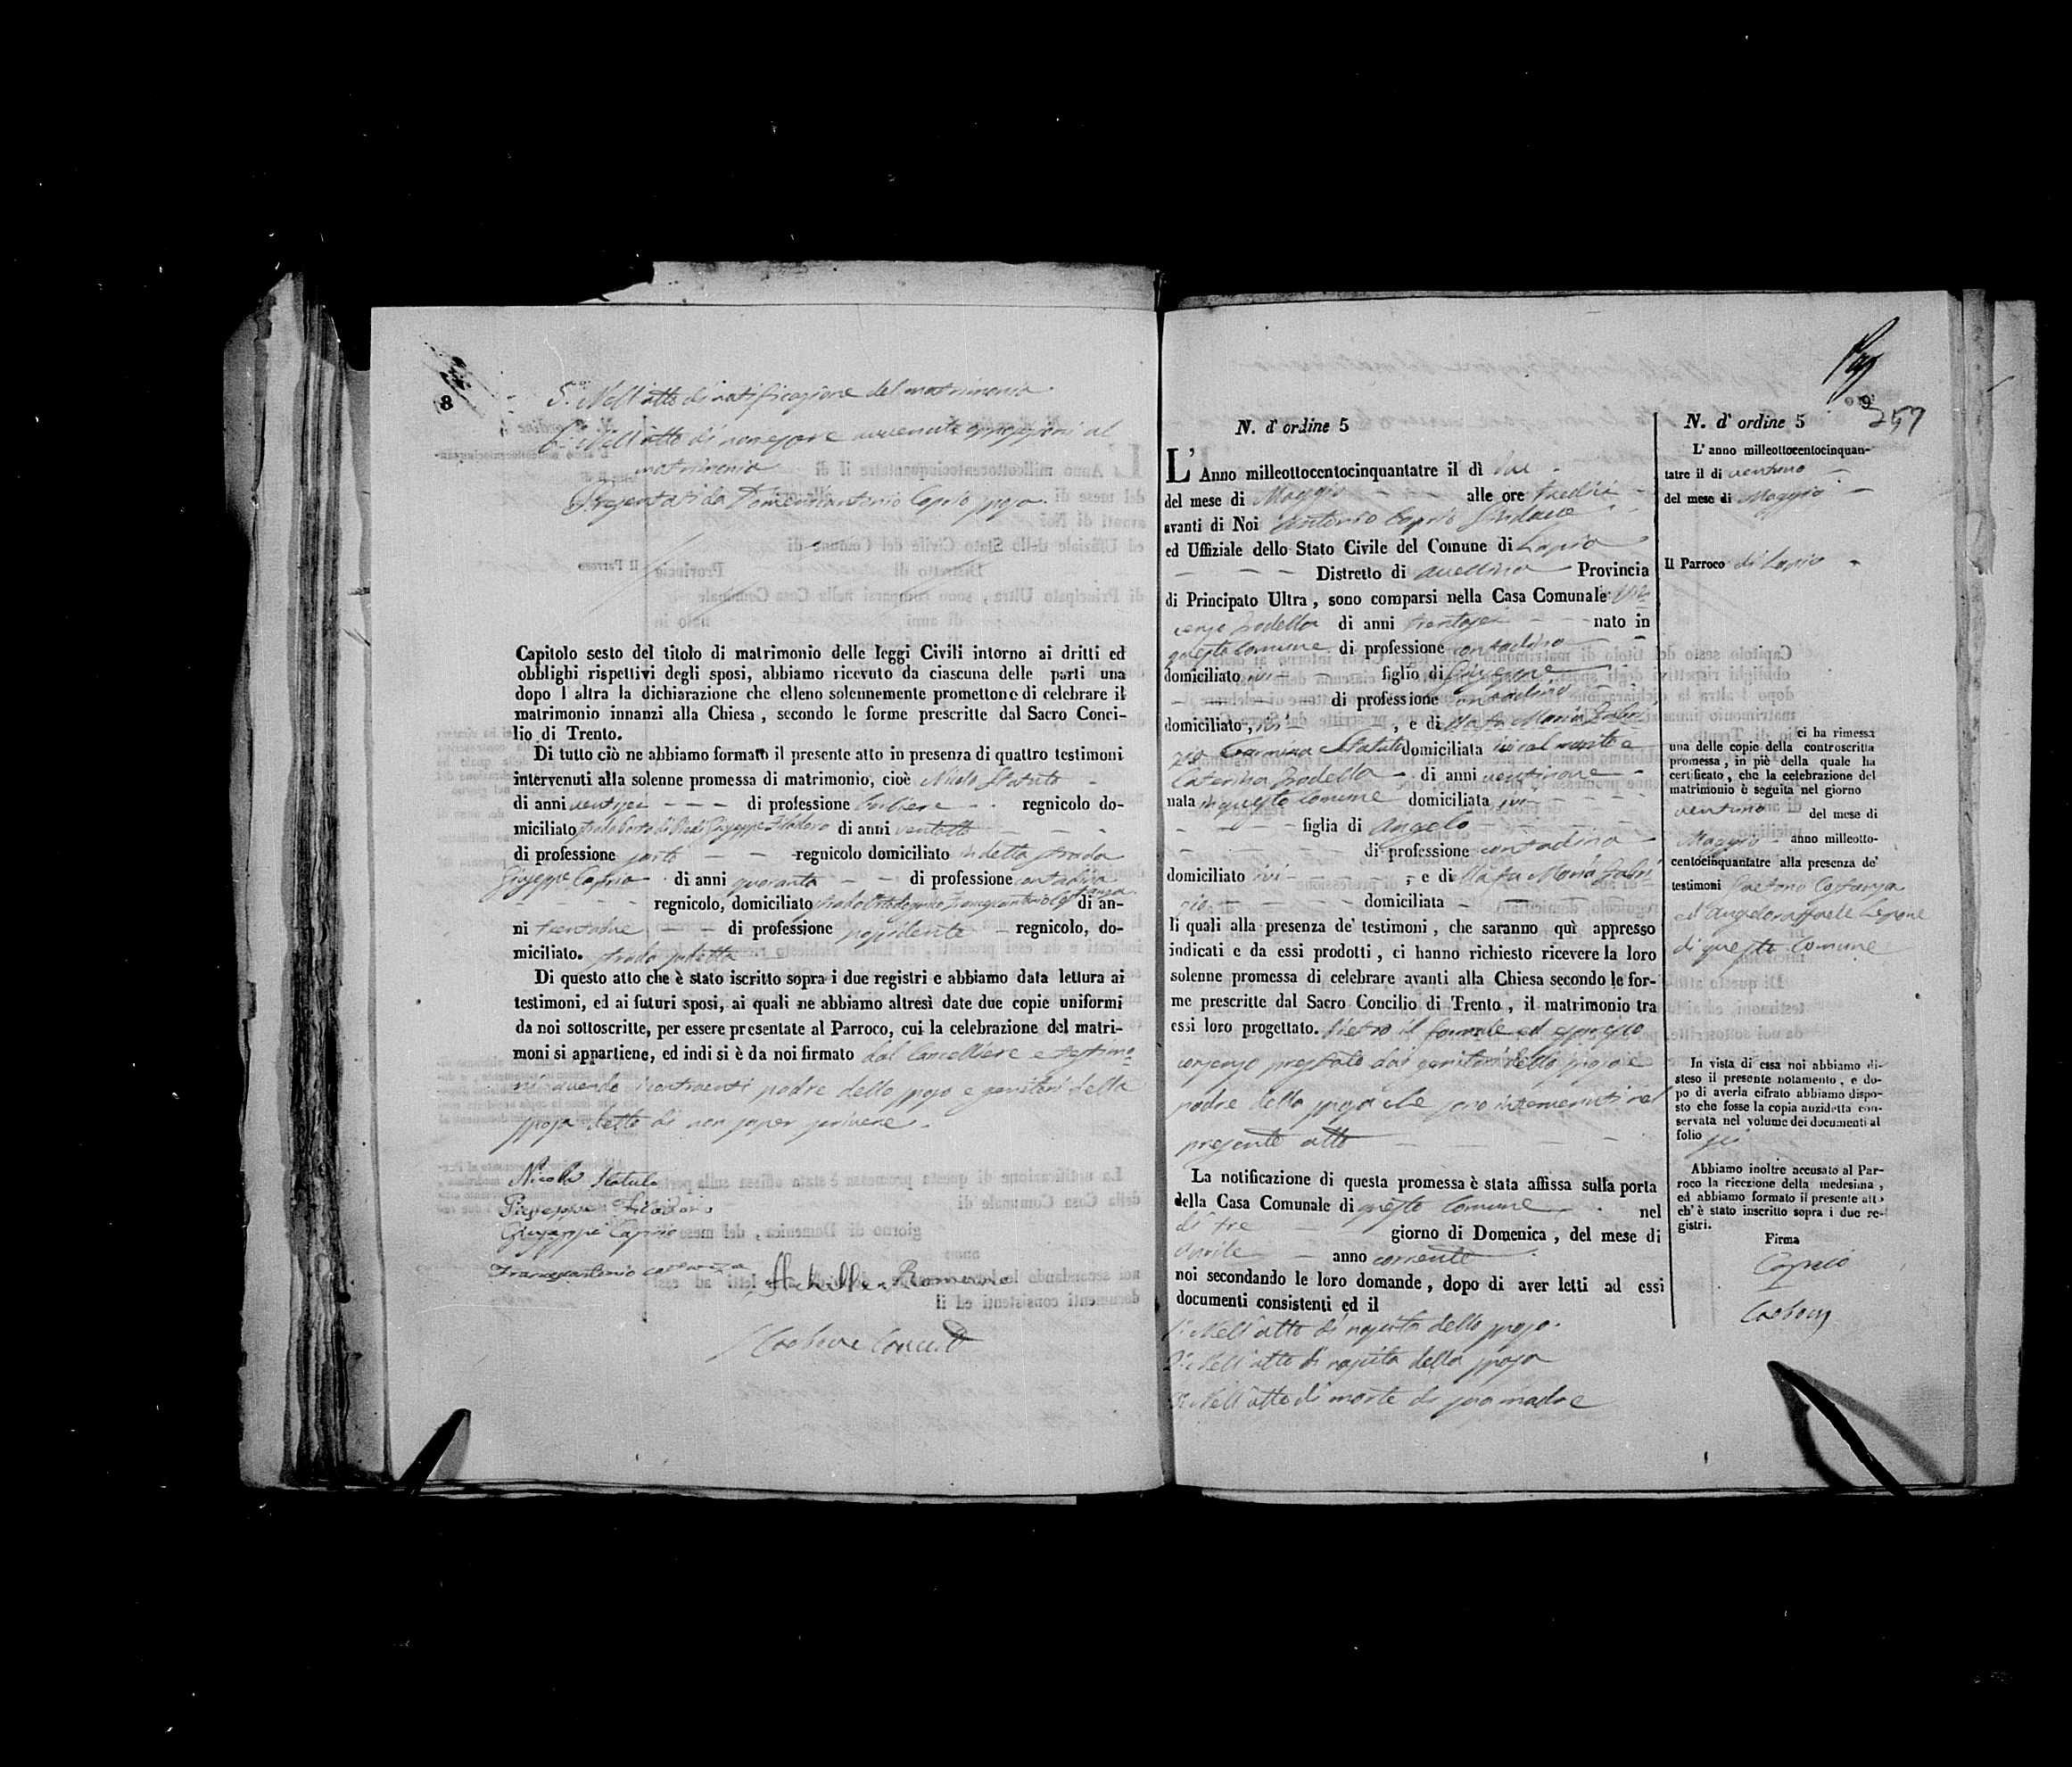 8
5.º Nell'atto di notificazione del matrimonio
6.º Nell'atto di non essere avvenute opposizioni al
matrimonio
Presentati da Domenicantonio Caprio sposo.
Capitolo sesto del titolo di matrimonio delle leggi Civili intorno ai dritti ed
obblighi rispettivi degli sposi, abbiamo ricevuto da ciascuna delle parti una
dopo l altra la dichiarazione che elleno solennemente promettono di celebrare il
matrimonio innanzi alla Chiesa, secondo le forme prescritte dal Sacro Conci-
lio di Trento.
Di tutto ciò ne abbiamo formato il presente atto in presenza di quattro testimoni
intervenuti alla solenne promessa di matrimonio, cioè Nicola Statuto
di anni ventisei di professione barbiere regnicolo do-
miciliato strada Giuseppe di anni ventotto
di professione sarto regnicolo domiciliato in detta strada
Giuseppe Caprio di anni quaranta di professione contadino
regnicolo, domiciliato strada Francescantonio Costanza di an-
ni trentadue di professione possidente regnicolo, do-
miciliato. strada sudetta
Di questo atto che è stato iscritto sopra i due registri e abbiamo data lettura ai
testimoni, ed ai futuri sposi, ai quali ne abbiamo altresì date due copie uniformi
da noi sottoscritte, per essere presentate al Parroco, cui la celebrazione del matri-
moni si appartiene, ed indi si è da noi firmato dal Cancelliere e testimo-
ni avendo i contraenti padre dello sposo e genitori della
sposa detto di non saper scrivere.
Nicola Statuto
Giuseppe
Giuseppe Caprio
Francescantonio Costanza Achille Romano
9
257
N. d' ordine 5
L' Anno milleottocentocinquantatre il dì due
del mese di Maggio alle ore tredici
avanti di Noi Antonio Caprio Sindaco
ed Uffiziale dello Stato Civile del Comune di Lapio
Distretto di Avellino Provincia
di Principato Ultra, sono comparsi nella Casa Comunale Vin-
cenzo di anni trentasei nato in
questo Comune di professione contadino
domiciliato ivi figlio di Giuseppe
di professione contadino
domiciliato, ivi, e di
Carmina Statuto domiciliata ivi col marito e
Caterina di anni ventinove
nata in questo Comune domiciliata ivi
figlia di Angelo
di professione contadino
domiciliato ivi, e di Maria
domiciliata
li quali alla presenza de' testimoni, che saranno quì appresso
indicati e da essi prodotti, ci hanno richiesto ricevere la loro
solenne promessa di celebrare avanti alla Chiesa secondo le for-
me prescritte dal Sacro Concilio di Trento, il matrimonio tra
essi loro progettato. Dietro il formale ed espresso
consenso prestato dai genitori dello sposo e
padre della sposa che sono intervenuti nel
presente atto
La notificazione di questa promessa è stata affissa sulla porta
della Casa Comunale di questo Comune nel
di tre giorno di Domenica, del mese di
Aprile anno corrente
noi secondando le loro domande, dopo di aver letti ad essi
documenti consistenti ed il
1.º Nell'atto di nascita dello sposo.
2.º Nell'atto di nascita della sposa
3.º Nell'atto di morte di sua madre
N. d' ordine 5
L' anno milleottocentocinquan-
tatre il di ventuno
del mese di Maggio
Il Parroco di Lapio
ci ha rimessa
una delle copie della controscritta
promessa, in piè della quale ha
certificato, che la celebrazione del
matrimonio è seguita nel giorno
ventuno del mese di
Maggio anno milleotto-
centocinquantatre alla presenza de'
testimoni Gaetano Costanza
ed Angeloraffaele
di questo Comune
In vista di essa noi abbiamo di-
steso il presente notamento, e do-
po di averla cifrato abbiamo dispo-
sto che fosse la copia anzidetta con-
servata nel volume dei documenti al
folio sei
Abbiamo inoltre accusato al Par-
roco la ricezione della medesima,
ed abbiamo formato il presente atto
ch' è stato inscritto sopra i due re-
gistri.
Firma
Caprio